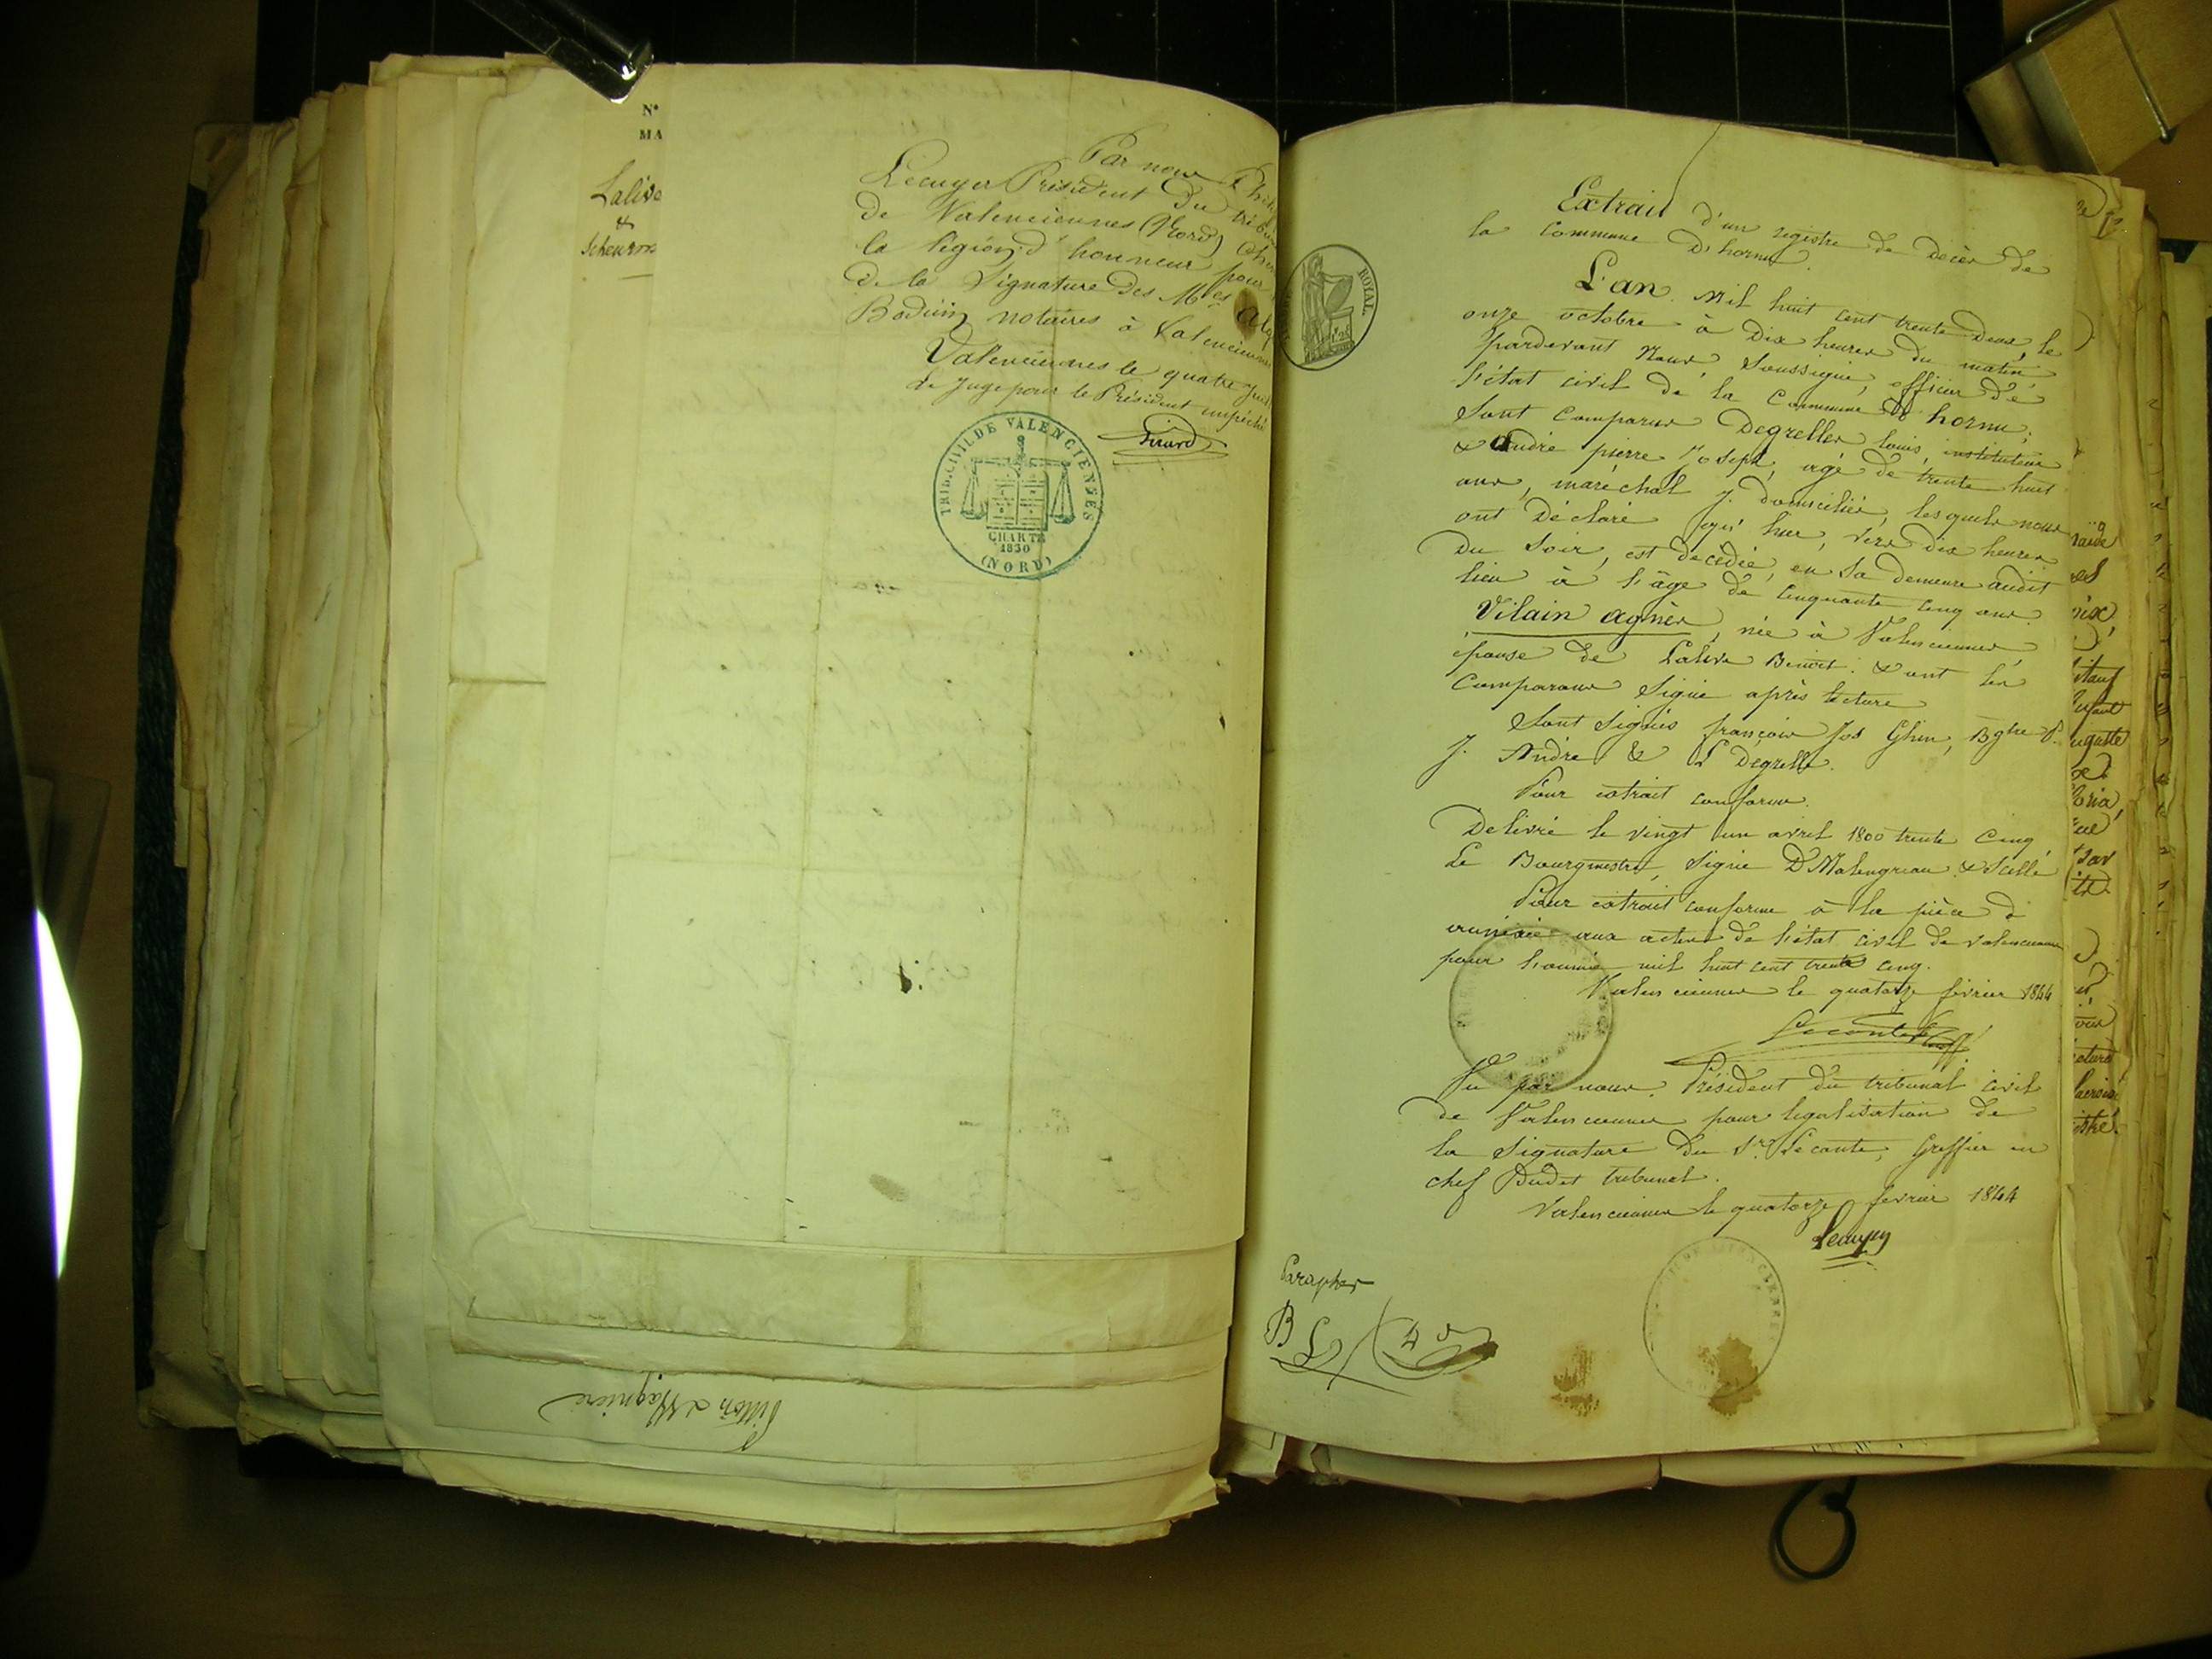 N°
MA
Lalive
&
Scheuron
Par nous
Lecuyer Président du tribu
de Valenciennes (Nord)
la légion d'honneur pour
de la Signature des Mes
Boduin notaires à Valenciennes
Valenciennes le quatre
le Juge pour le Président empêché
Girard
TRIB. CIVIL DE VALENCIENNES
CHARTE
1830
(NORD)
Tillon & Magnière
ROYAL
Extrait d'un registre de Décès de
la Commune D'hornu.
L'an mil huit cent trente Deux, le
onze octobre à Dix heures du matin
pardevant Nous, Soussigné, officier De
l'état civil de la Commune D'hornu;
Sont Comparus Degrelles louis, instituteur
& André pierre Joseph, agé de trente huit
ans, maréchal y domicilié, lesquels nous
ont Déclaré qu'hier, vers dix heures
Du Soir, est décédée, en Sa demeure audit
lieu à l'âge de Cinquante Cinq ans
Vilain agnès, née à Valenciennes,
épouse de Lalive Benoit. & ont les
Comparans Signé après lecture
Sont Signés françois Jos Ghin, Bgtre P.
J. André & L Degrelle.
Pour extrait conforme.
Delivré le vingt un avril 1800 trente Cinq
Le Bourgmestre, Signé D Malengreau & Scellé
Pour extrait conforme à la pièce
annexée aux actes de l'état civil de valenciennes
pour l'année mil huit cent trente cinq.
Valenciennes le quatorze février 1844
Lecomte
Vu par nous Président du tribunal civil
de Valenciennes pour legalisation de
la Signature du Sr. Lecomte, Greffier en
chef Dudit tribunal.
Valenciennes le quatorze février 1844
Lecuyer
Parapher
B L